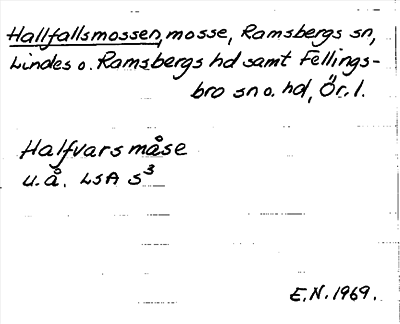 Hallfallsmossen, mosse, Ramsbergs sn,
Lindes o. Ramsbergs hd samt Fellings-
bro sn o. hd, Ör. l.
Halfvars måse
u.å. LSA S³
E.N. 1969.